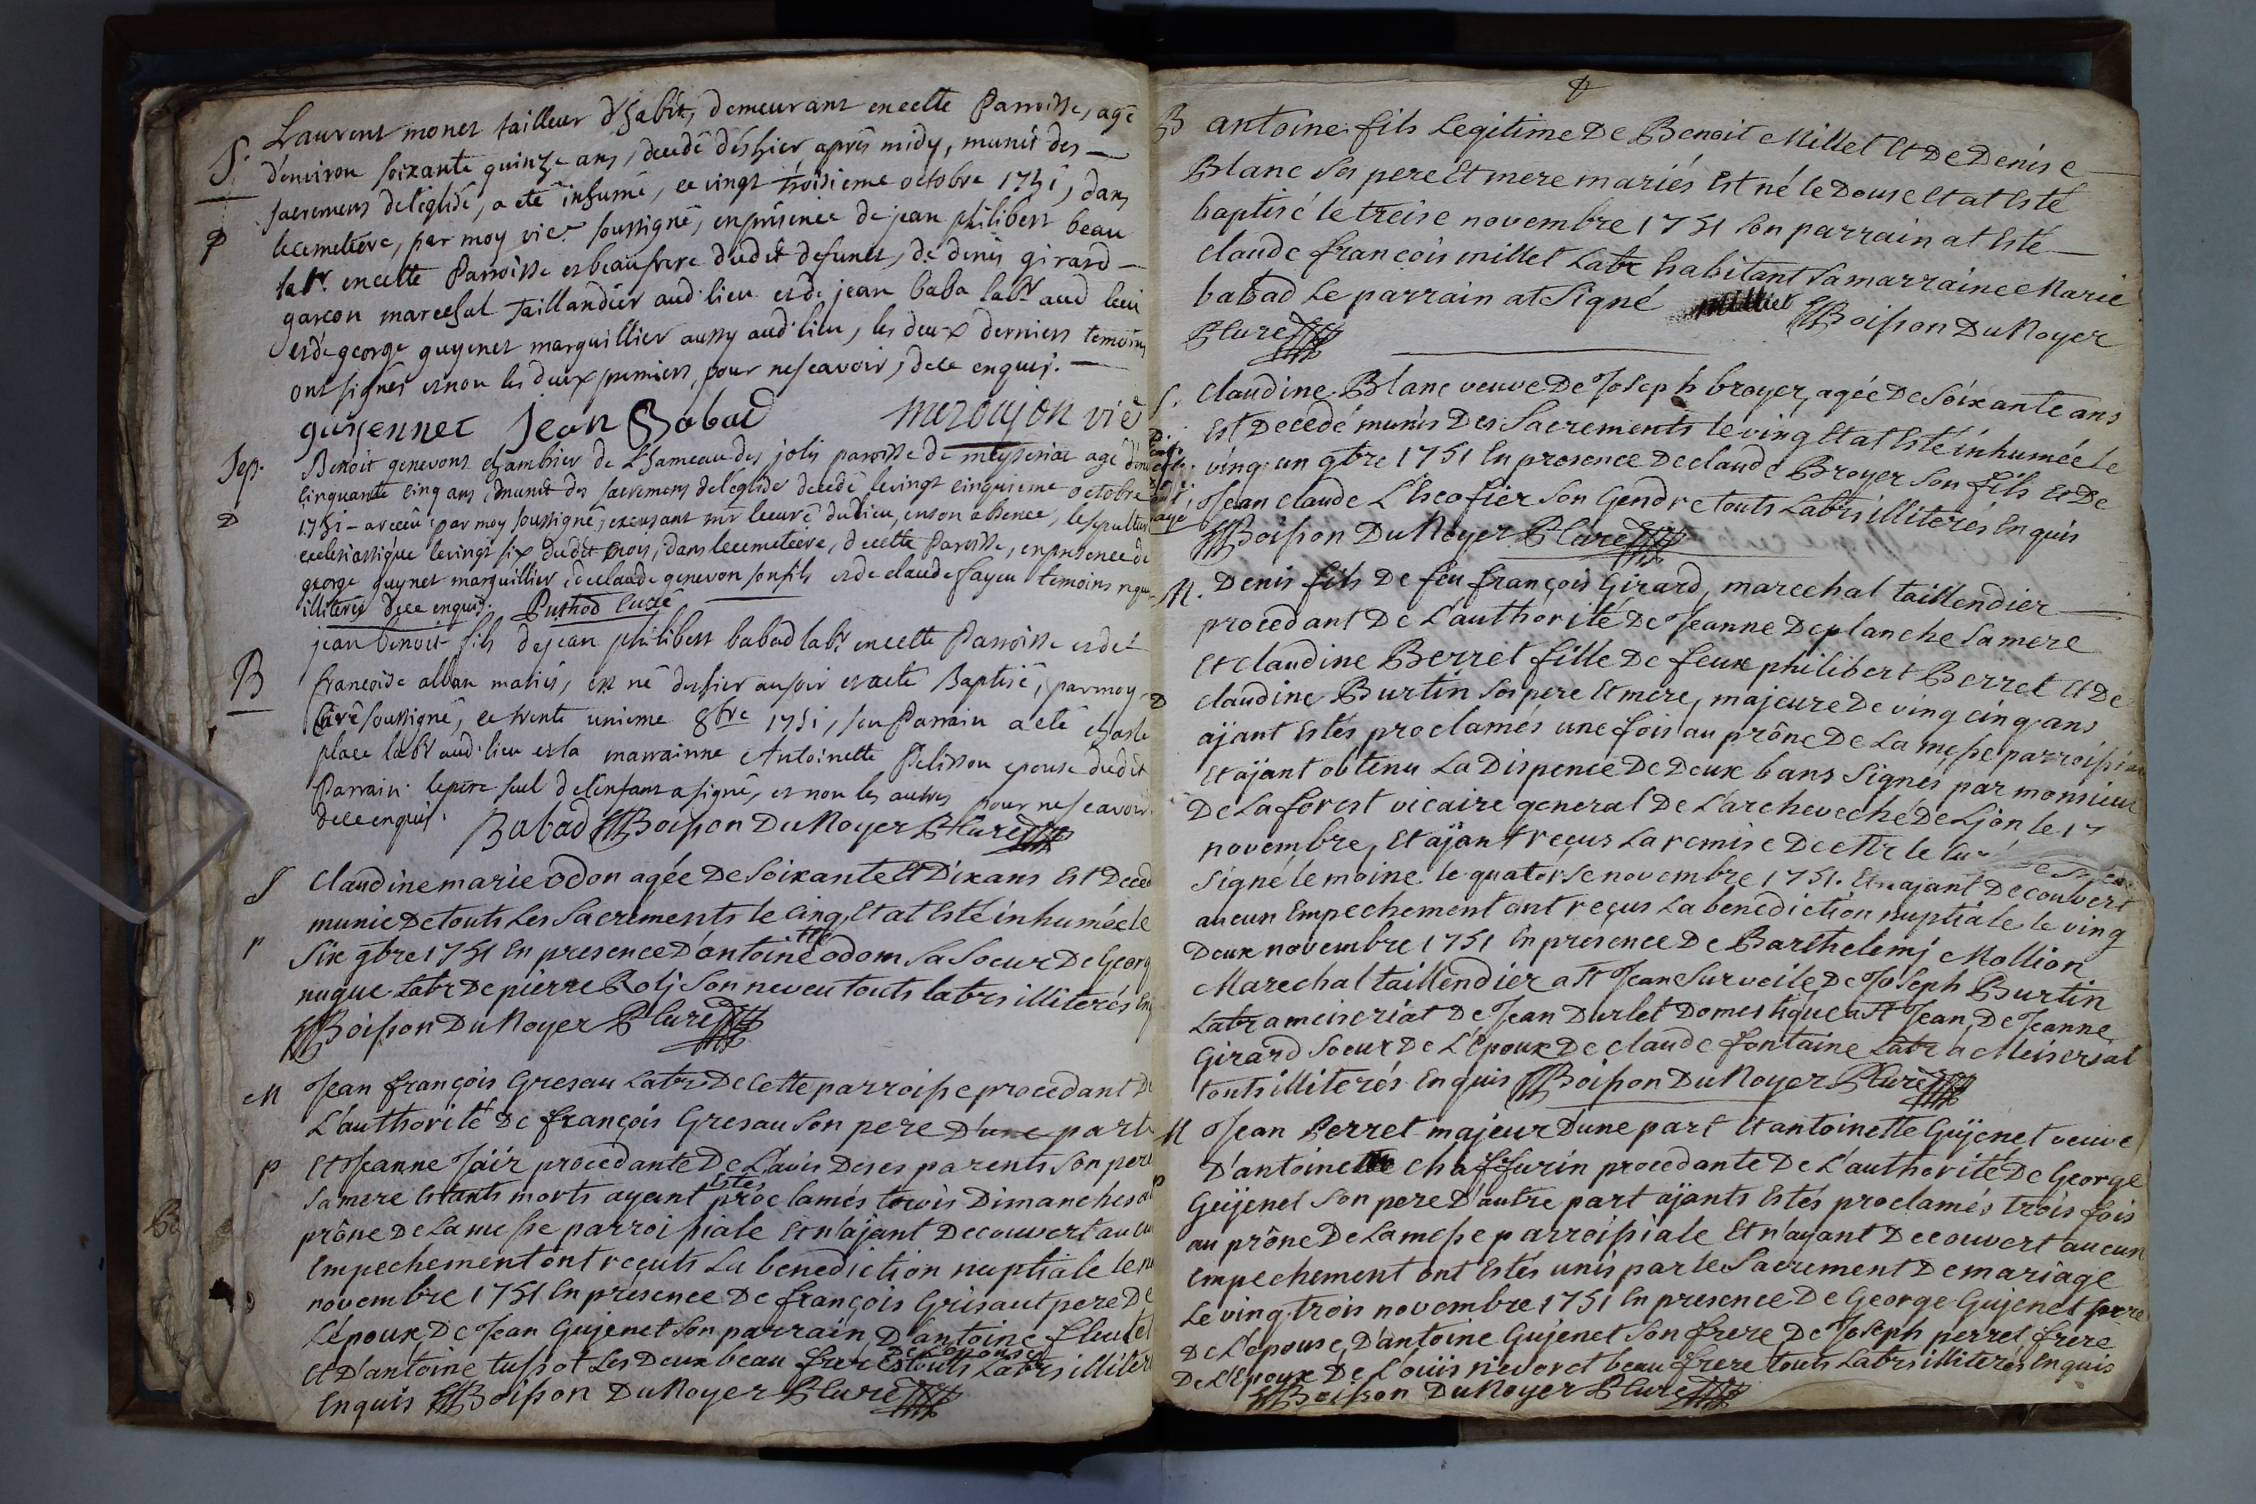 S. Laurent monet tailleur d'habit, demeurant en cette Parroisse, agé
d'environ soixante quinze ans, decedé dèshier après midy, munit des
sacremens de l'église, a eté inhumé, ce vingt troisieme octobre 1751, dans
P le cemetiere, par moy vic.e soussigné, en présence de jean philibert beau
labr. en cette Parroisse et beaufrere dudit defunct, de denis girard
garcon marechal taillandier aud. lieu et de jean baba labr. aud lieu
et de george guyenet marguillier aussy aud. lieu, les deux derniers temoins
ont signés et non les deux premiers, pour ne scavoir, de ce enquis.
guyennet Jean Babad vic
Sep. Benoit genevont chambrier de L'hameau des jolis paroisse de meyseriat agé d'env
cinquante cinq ans, munit des sacremens de l'eglise decedé le vingt cinquieme octobre
1751 - a receu par moy soussigné, excusant mr le curé du lieu, en son absence, la sepulture
ecclesiastique le vingt six dudit mois, dans le cemetiere, de cette Paroisse, en presence de
george guynet marguillier, de claude genevon son fils et de claude fayeu temoins requis
illiterés de ce enquis. Puthod curé
jean benoit fils de jean philibert babad labr. en cette Parroisse et de
B francoise alban mariés, est né dushier au soir et a eté Baptisé, par moy
Curé soussigné, ce trente unieme 8bre 1751, son Parrain a eté charle
place labr aud. lieu et la marrainne Antoinette Pelisson epouse dudit
Parrain. le pere seul de l'enfant a signé, et non les autres pour ne scavoir
de ce enquis.
Babad Boisson Du Noyer P Curé
S Claudine marie odon agée De soixante Et Dix ans Est Deced
munie De touts Les Sacrements le cinq, Et at Esté inhumée le
Six 9bre 1751 En presence D'antoinette odom sa soeur De Georg
nugue Labr De pierre Rolj Son neveu touts labrs illiterés En
Boisson Du Noyer P Curé
M Jean françois Gresau Labr De Cette parroisse procedant De
L'authorité De françois Gresau Son pere D'une part
P Et Jeanne Jair procedante De L'avis De ses parents Son pere
Sa mere Estants morts ayant Estés proclamés trois Dimanches au
prône De La messe parroissiale Et n'ajant Decouvert aucun
Empechement ont reçuts La benediction nuptiale le
novembre 1751 En présence De françois Grisaut pere De
L'époux, De Jean Gujenet Son parrain D'antoine fleutet
Et D'antoine tussot Les Deux beau freres De L'epouse touts Labrs illiter
Enquis Boisson Du Noyer P Curé
B antoine fils Legitime De Benoit Millet Et De Denise
Blanc Ses pere Et mere mariés Est né le Douse Et at Esté
baptisé le treise novembre 1751 Son parrain at Esté
claude françois millet Labr habitant Sa marraine Marie
babad Le parrain at Signé millet Boisson Du Noyer
P Curé
S. Claudine Blanc veuve De Joseph broyer, agée De Soixante ans
Est Decedé munis Des Sacrements le vingt Et at Esté inhumée Le
ving: un 9bre 1751 En presence De claude Broyer Son fils Et De
Jean claude L'Escofier Son Gendre touts Labrs illiterés Enquis
Boisson Du Noyer P Curé
M. Denis fils De feu françois Girard, marechal taillendier
procedant De L'authorité De Jeanne Deplanche Sa mere
Et Claudine Berret fille De feux philibert Berret Et De
P Claudine Burtin Ses pere Et mere, majeure De ving cinq ans
ajant Estés proclamés une fois au prône De La messe parroissia
Et ajant obtenu La Dispence De Deux bans Signés par monsieur
De La forest vicaire general De L'archeveché De Ljon le 17
novembre, Et ajant reçus La remise De Mr le Cu
Signé le moine le quatorse novembre 1751. Et n'ajant Decouvert
aucun Empechement ont reçus La benediction nuptiale le ving
Deux novembre 1751 En presence De Barthelemj Mollion
Marechal taillendier a St Jean Sur veile, De Joseph Burtin
Labr a meiseriat De Jean Durlet Domestique a St Jean, De Jeanne
Girard Soeur De L'Epoux De claude fontaine Labr a Meiseriat
touts illiterés Enquis Boisson Du Noyer P Curé
M Jean Perret majeur D'une part Et antoinette Gujenet veuve
D'antoine chaffurin procedante De L'authorité De George
P Gujenet Son pere D'autre part ajants Estés proclamés trois fois
au prône De La messe parroissiale Et n'ayant Decouvert aucun
Empechement ont Estés unis par le Sacrement De mariage
Le ving: trois novembre 1751 En presence De George Gujenet pere
De L'épouse, D'antoine Gujenet Son frere De Joseph perret frere
De L'Epoux De Louis nivoret beau frere touts Labrs illiterés Enquis
Boisson Du Noyer P Curé